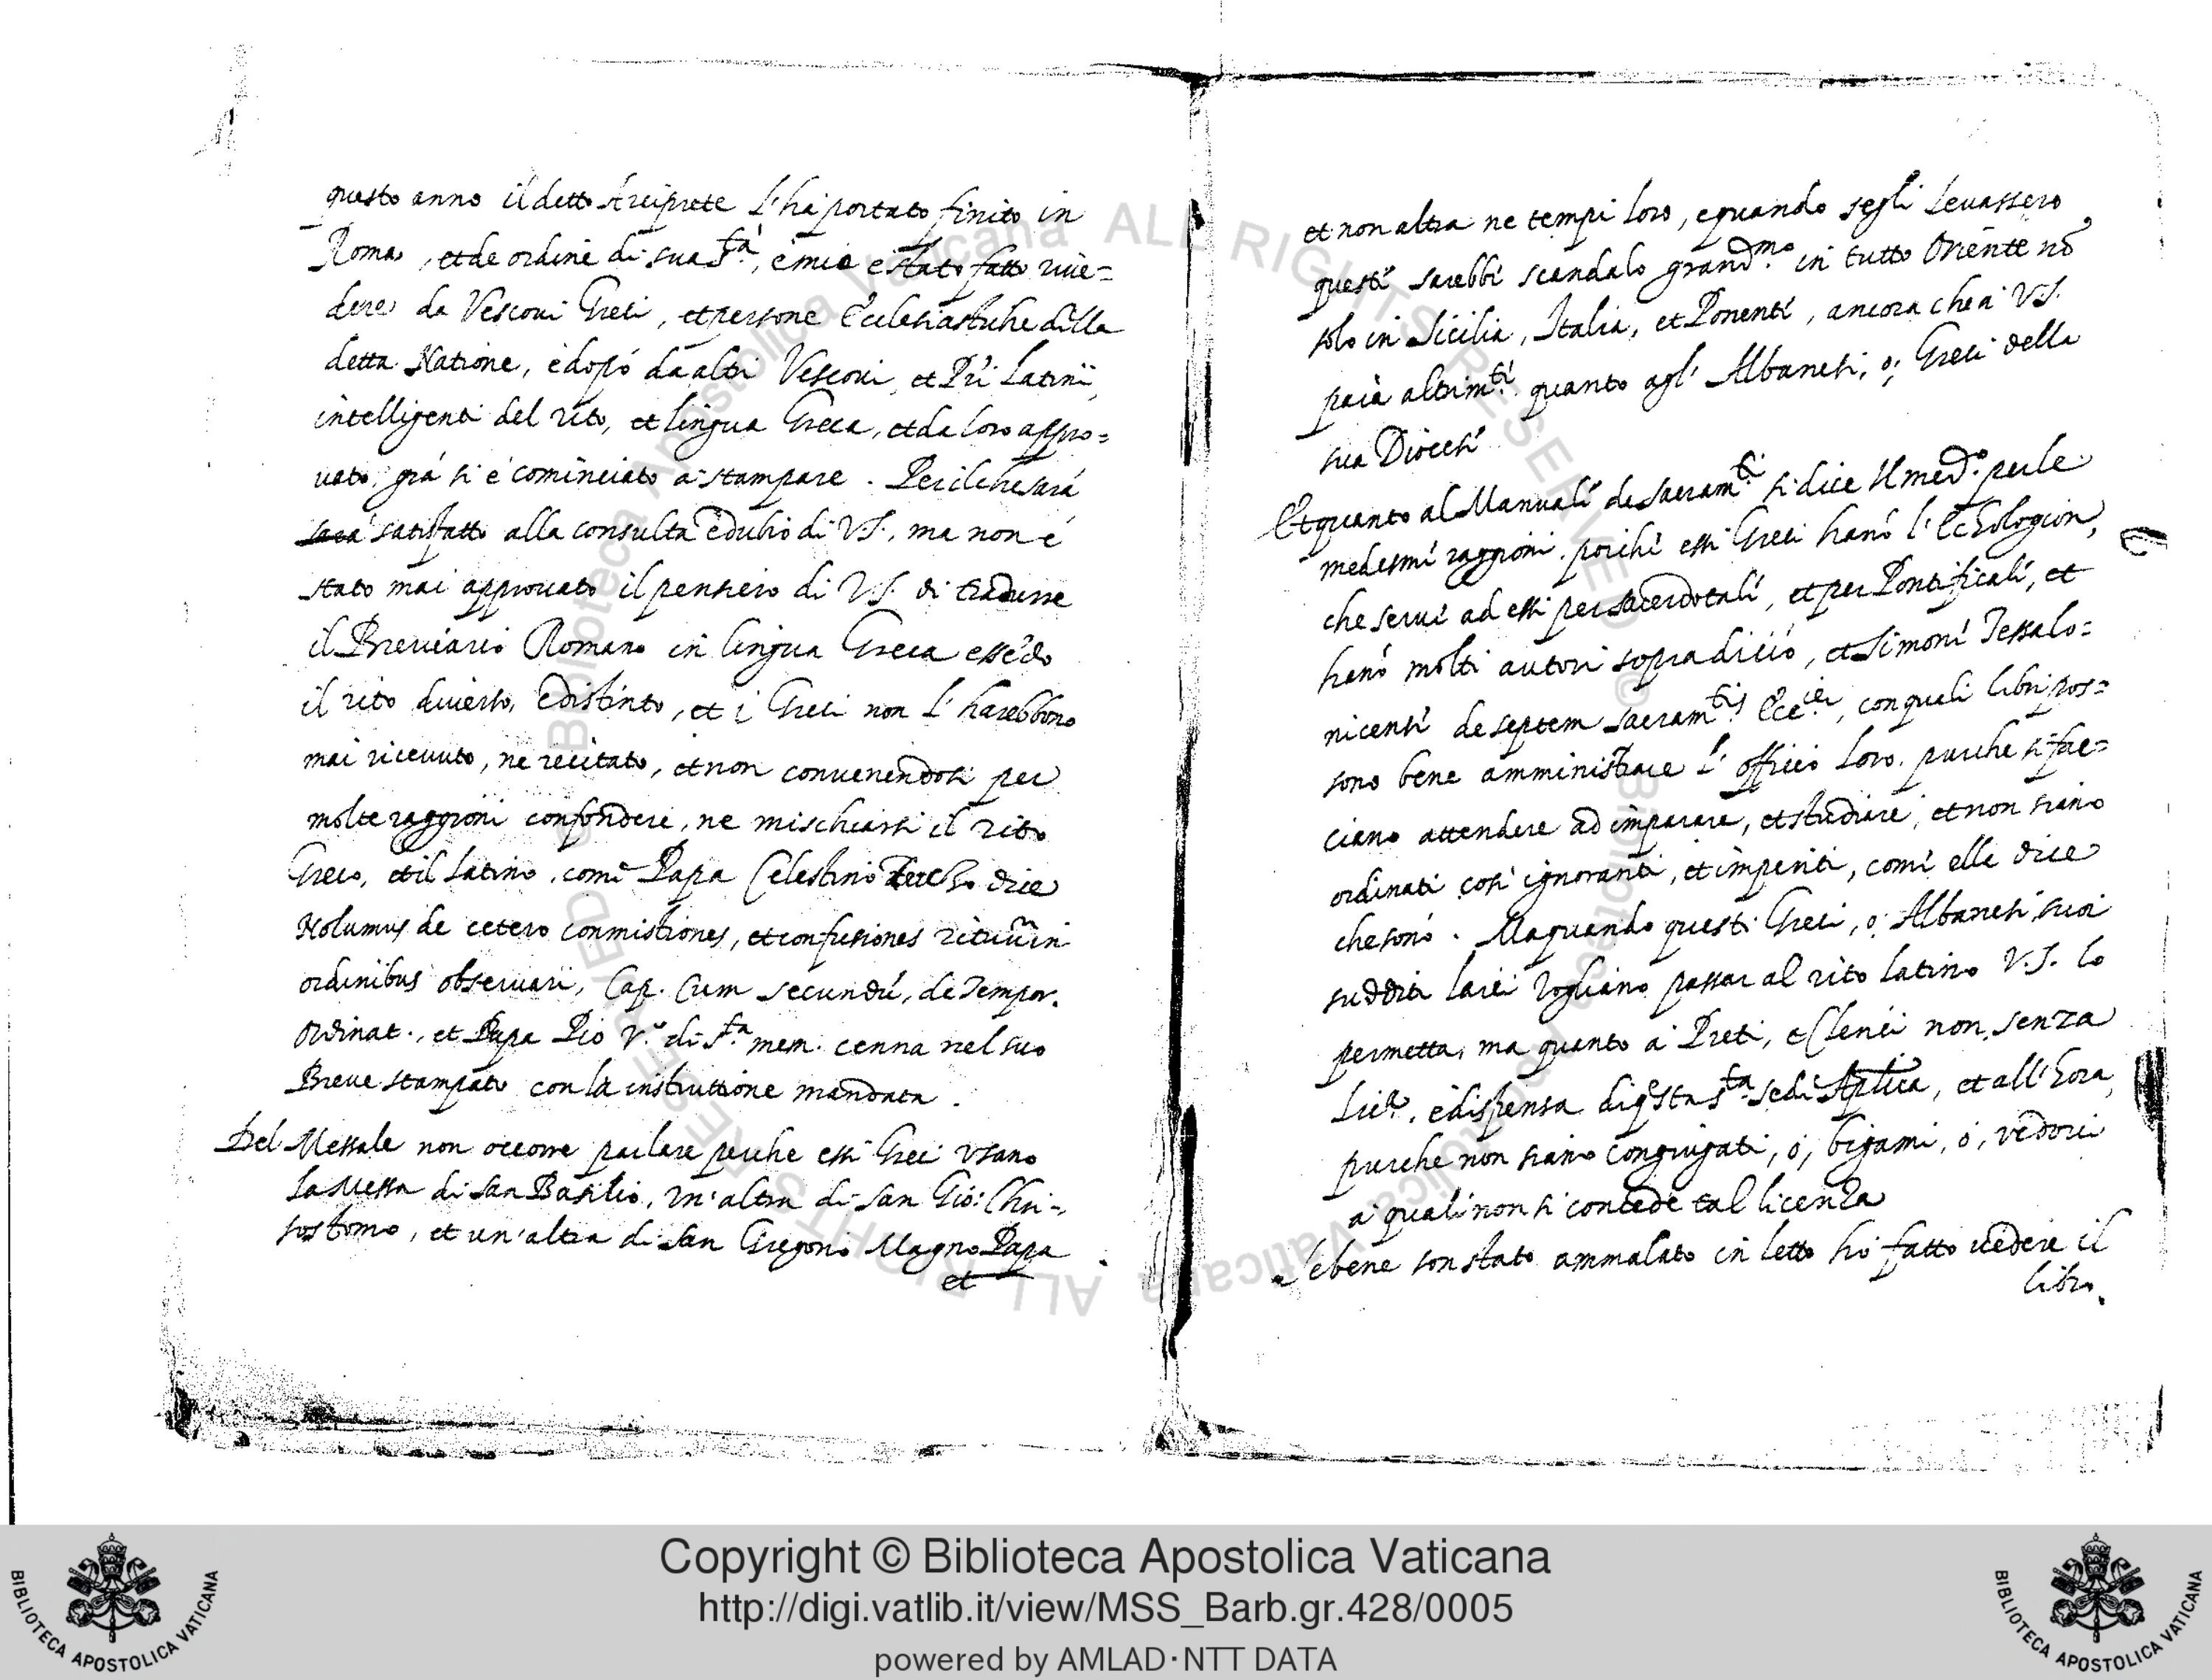 questo anno il detto Arciprete l'ha portato finito in
Roma, et de ordine di sua S.tà, e mio e stato fatto rive=
dere da Vescovi Greci, et persone Ecclesiastiche della
detta Natione, e dopó da altri Vescovi, et P̃ri Latini,
intelligenti del rito, et lingua Greca, et da loro appro=
vato, giá si é cominciato a stampare. Per il che sará
satisfatto alla consulta e dubio di V.S. ma non é
stato mai approvato il pensiero di V.S. di tradurre
il Breviario Romano in lingua Greca essẽdo
il rito diverso, e distinto, et i Greci non l'harebbono
mai ricevuto, ne recitato, et non convenendosi per
molte raggioni confondere, ne mischiarsi il rito
Greco, et il Latino, come Papa Celestino dice
Nolumus de cetero conmistiones, et confusiones rituũ in
ordinibus observari, Cap. Cum secundũ, de Tempor.
Ordinat., et Papa Pio V.o di S.ta mem. cenna nel suo
Breve stampato con la instruttione mandata.
Del Messale non occorre parlare perche essi Greci usano
la Messa di San Basilio, un'altra di San Gio: Chri=
sostomo, et un'altra di San Gregorio Magno Papa
et
et non altra ne tempi loro, e quando segli levassero
questi sarebbe scandalo grand.mo in tutto Oriente nõ
solo in Sicilia, Italia, et Ponente, ancora che a V.S.
paia altrim.ti quanto agl'Albanesi, o, Greci della
sua Diocesi
Et quanto al Manuale de Sacram.ti si dice il med.o per le
medesme raggioni, poiche essi Greci hanó l'Echologion,
che serve ad essi per sacerdotale, et per Pontificale, et
hanó molti autori sopra di ció, et Simone Tessalo=
nicense de septem Sacram.tis Ecc.iæ, con quali libri pos=
sono bene amministrare l'officio loro, purche si fac=
ciano attendere ad imparare, et studiare, et non siano
ordinati cosi ignoranti, et imperiti, come ella dice
che sono. Ma quando questi Greci, o, Albanesi suoi
sudditi laici vogliano passar al rito latino V.S. lo
permetta, ma quanto a Preti, e Clerici non senza
Lic.a, e dispensa di q̃sta S.ta Sede Aplica, et all'hora
purche non siano congiugati, o, bigami, o, vedovi
a quali non si concede tal licenza
Se bene son stato ammalato in letto ho fatto vedere il
libro.
Copyright © Biblioteca Apostolica Vaticana
http://digi.vatlib.it/view/MSS_Barb.gr.428/0005
powered by AMLAD·NTT DATA
BIBLIOTECA APOSTOLICA VATICANA
BIBLIOTECA APOSTOLICA VATICANA